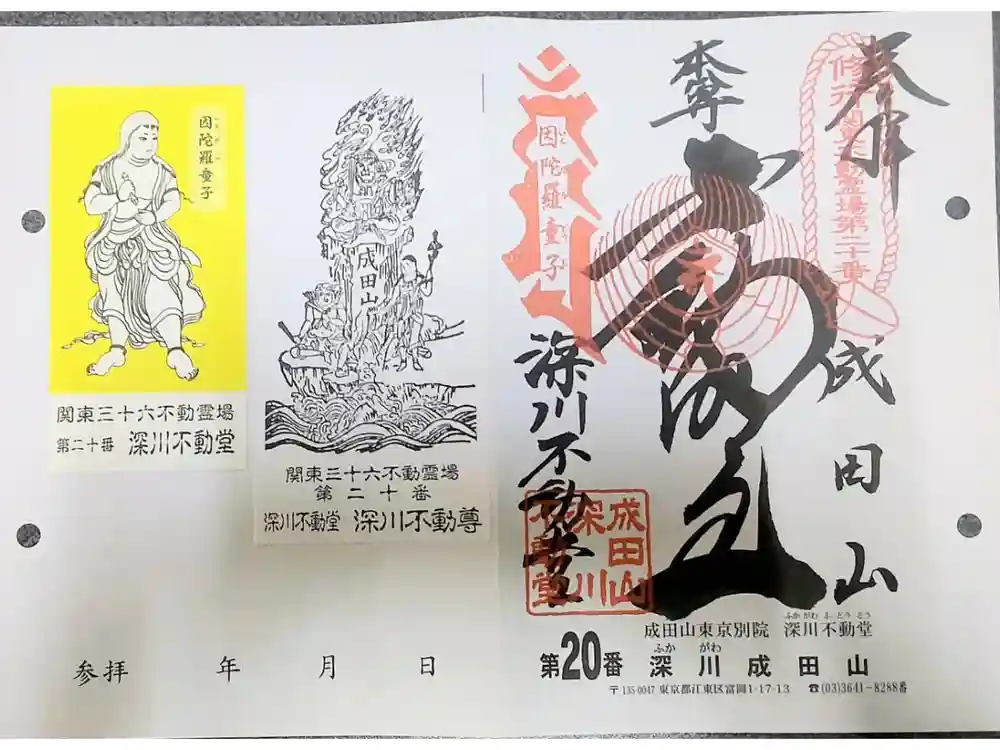 奉拝
修行関東不動霊場第二十番
本尊
成田山
深川不動堂
因陀羅童子
成田山
深川
不動堂
成田山東京別院 深川不動堂
ふか がわ ふ どう どう
第20番 深川成田山
ふか がわ
〒135-0047 東京都江東区富岡1-17-13 ☎(03)3641-8288番
成田山
関東三十六不動霊場
第二十番
深川不動堂 深川不動尊
因陀羅童子
関東三十六不動霊場
第二十番 深川不動堂
参拝 年 月 日